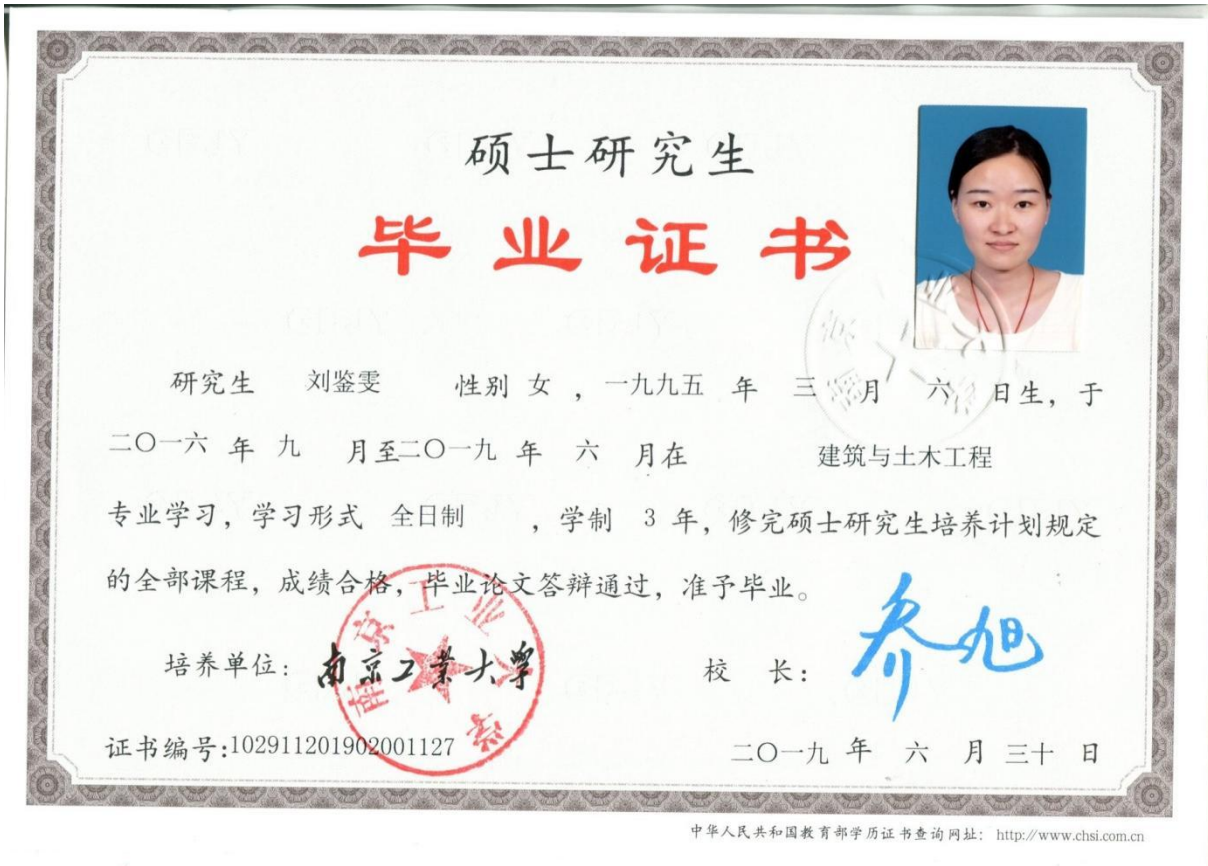 硕士研究生
毕业证书
研究生 刘鉴雯 性别 女 ，一九九五 年 三 月 六 日生，于
二〇一六 年 九 月至二〇一九 年 六 月在 建筑与土木工程
专业学习，学习形式 全日制 ，学制 3 年，修完硕士研究生培养计划规定
的全部课程，成绩合格，毕业论文答辩通过，准予毕业。
培养单位：南京工业大学 校 长：乔旭
南京工业大学
证书编号:102911201902001127 二〇一九 年 六 月 三十 日
中华人民共和国教育部学历证书查询网址： http://www.chsi.com.cn